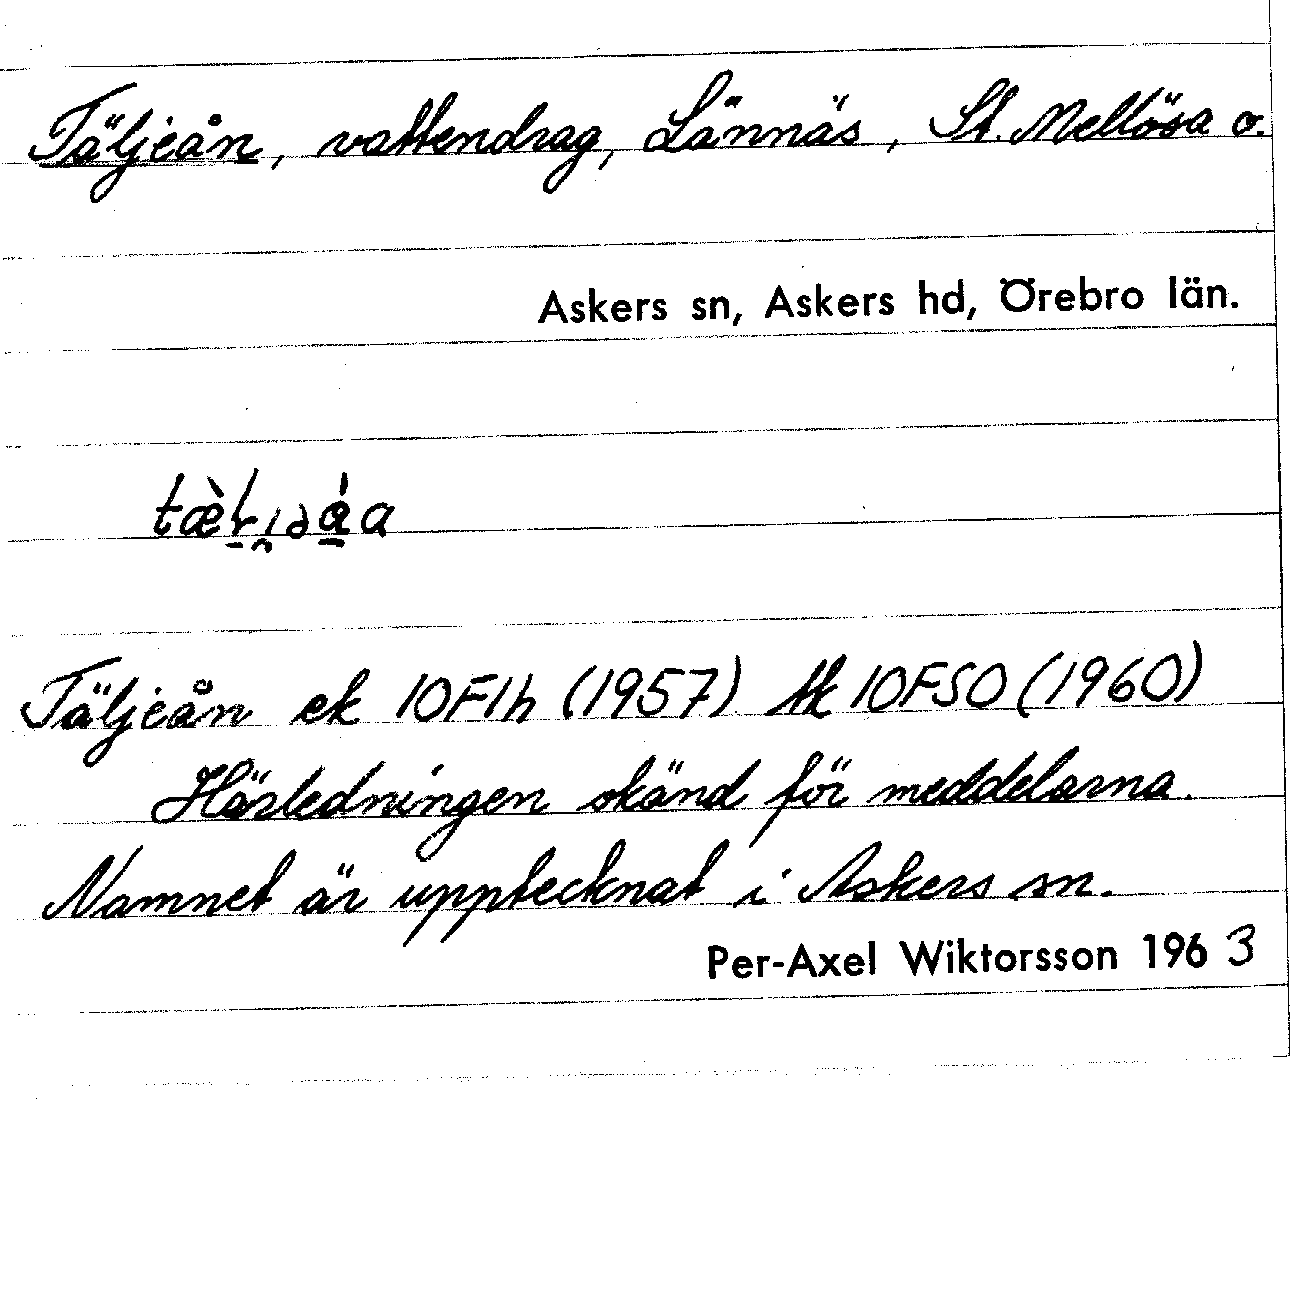 Täljeån, vattendrag, Lännäs, St. Mellösa o.
Askers sn, Askers hd, Örebro län.
Täljeån ek 10F1h (1957) tk 10FSO (1960)
Härledningen okänd för meddelarna.
Namnet är upptecknat i Askers sn.
Per-Axel Wiktorsson 1963